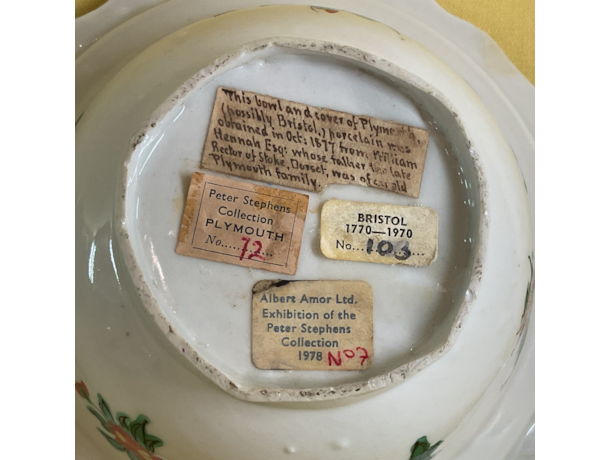 This bowl and cover of Plymouth
(possibly Bristol,) porcelain was
obtained in Oct: 1877 from William
Hennah Esq: whose father the late
Rector of Stoke, Dorset, was of an old
Plymouth family.
Peter Stephens
Collection
PLYMOUTH
No.....72...
BRISTOL
1770—1970
No...103......
Albert Amor Ltd.
Exhibition of the
Peter Stephens
Collection
1978 No7